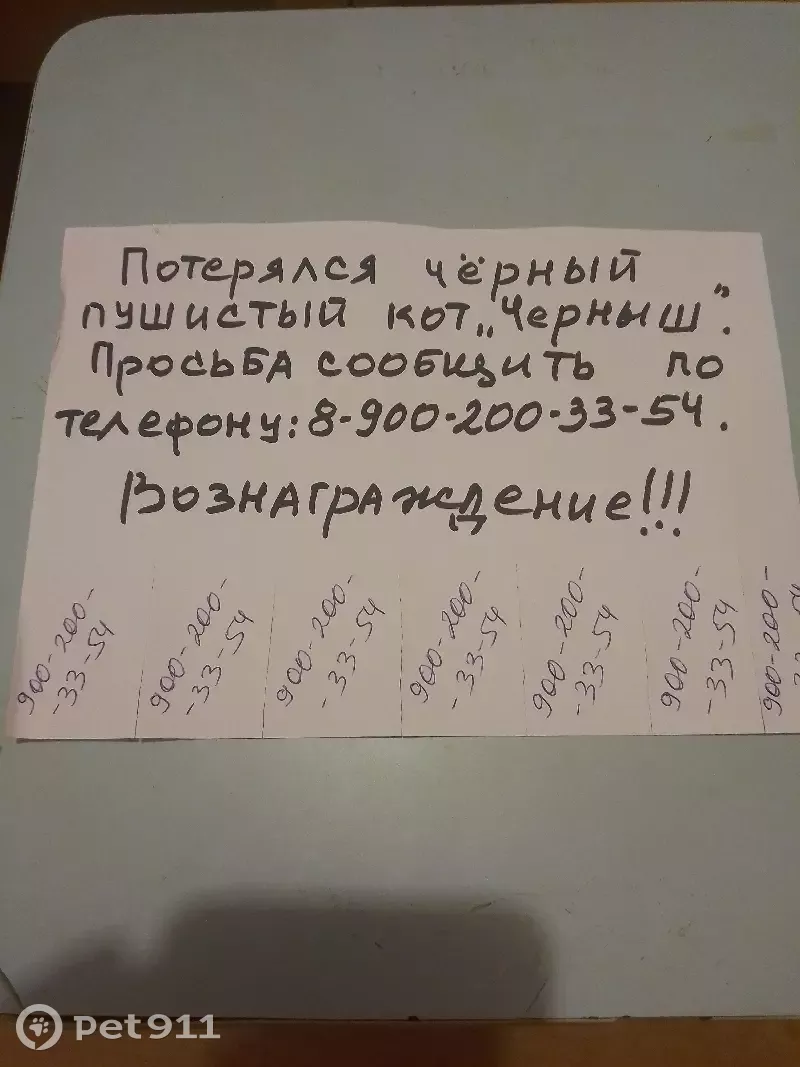 Потерялся чёрный
пушистый кот „Черныш".
Просьба сообщить по
телефону: 8-900-200-33-54.
Вознаграждение!!!
900-200-
-33-54
900-200-
-33-54
900-200-
-33-54
900-200-
-33-54
900-200-
-33-54
900-200-
-33-54
900-200-
pet911